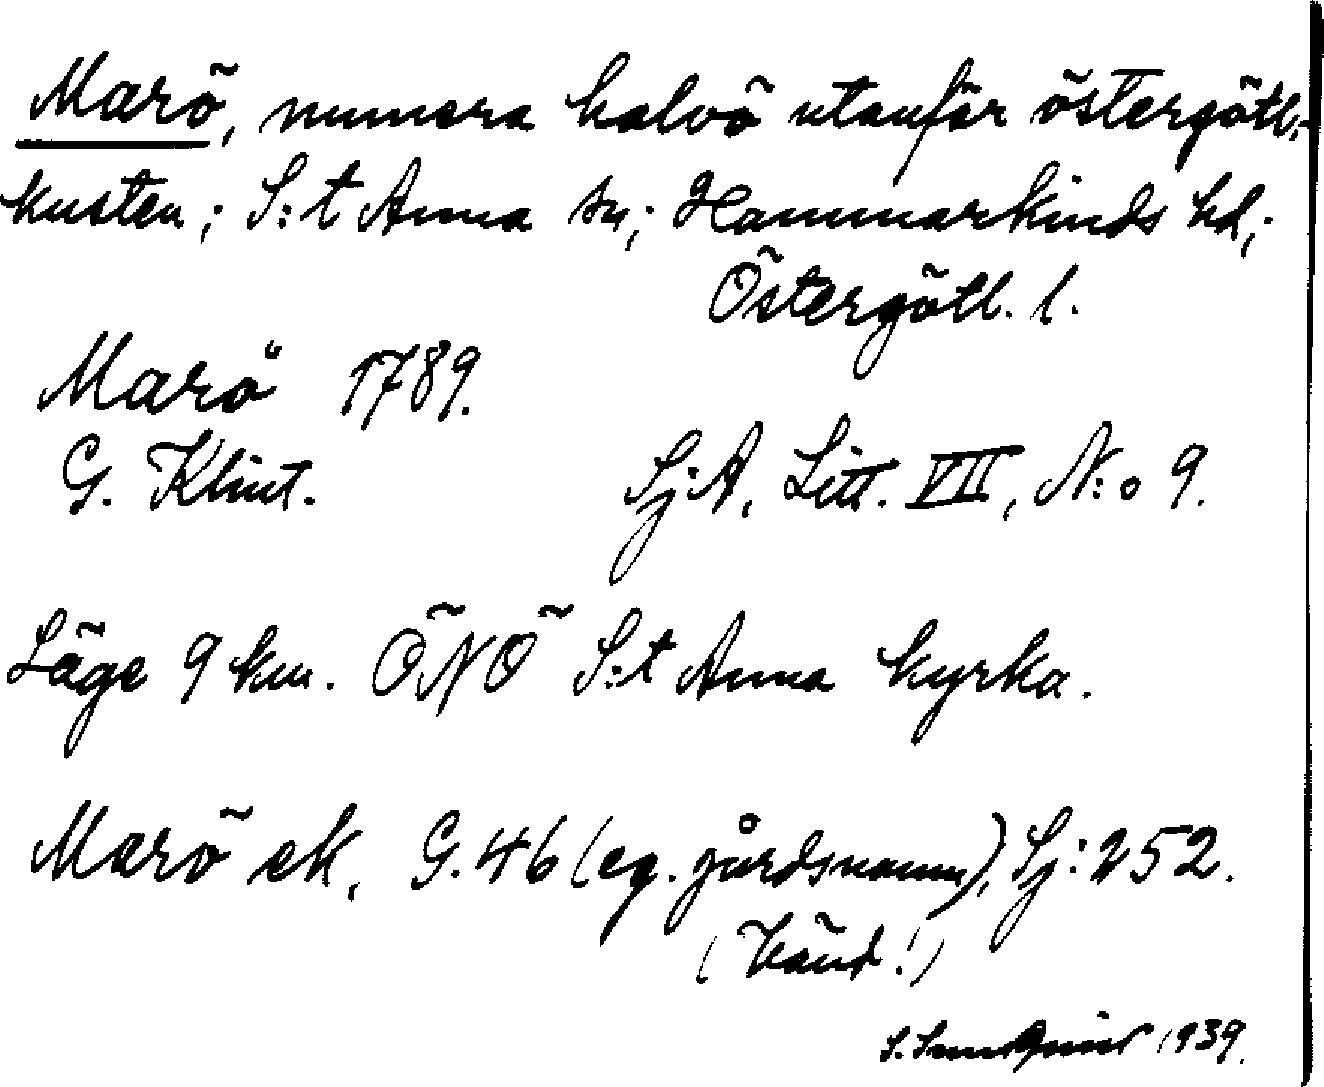 Marö, numera halvö utanför östergötl.-
kusten; S:t Anna sn; Hammarkinds hd;
Östergötl. l.
Marö 1789.
G. Klint. Sj:A, Litt. VII, N:o 9.
Läge 9 km. ÖNÖ S:t Anna kyrka.
Marö ek. G. 46 (eg. gårdsnamn), Sj: 252.
(Vänd!)
S. 1939.